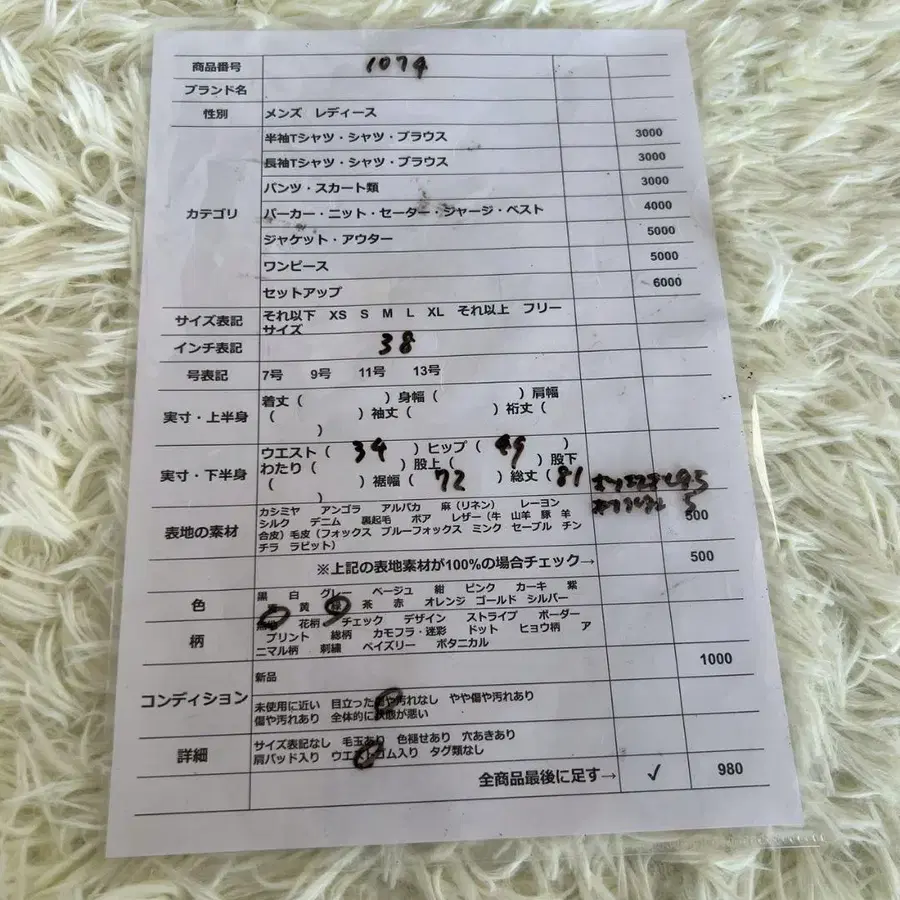 商品番号 1074
ブランド名
性別 メンズ レディース
半袖Tシャツ・シャツ・ブラウス 3000
長袖Tシャツ・シャツ・ブラウス 3000
パンツ・スカート類 3000
カテゴリ パーカー・ニット・セーター・ジャージ・ベスト 4000
ジャケット・アウター 5000
ワンピース 5000
セットアップ 6000
サイズ表記 それ以下 XS S M L XL それ以上 フリー
サイズ
インチ表記 38
号表記 7号 9号 11号 13号
着丈（ ）身幅（ ）肩幅
実寸・上半身 （ ）袖丈（ ）裄丈（
）
ウエスト（ 34 ）ヒップ（ 49 ）
わたり（ ）股上（ ）股下
実寸・下半身 （ ）裾幅（ 72 ）総丈（ 81
）
カシミヤ アンゴラ アルパカ 麻（リネン） レーヨン 500
シルク デニム 裏起毛 ボア レザー（牛 山羊 豚 羊
表地の素材 合皮）毛皮（フォックス ブルーフォックス ミンク セーブル チン
チラ ラビット）
※上記の表地素材が100%の場合チェック→ 500
黒 白 グレー ベージュ 紺 ピンク カーキ 紫
色 黄 茶 赤 オレンジ ゴールド シルバー
花柄 チェック デザイン ストライプ ボーダー
柄 プリント 総柄 カモフラ・迷彩 ドット ヒョウ柄 ア
ニマル柄 刺繍 ペイズリー ボタニカル
新品 1000
コンディション 未使用に近い 目立った や汚れなし やや傷や汚れあり
傷や汚れあり 全体的に状態が悪い
サイズ表記なし 毛玉あり 色褪せあり 穴あきあり
詳細 肩パッド入り ウエストゴム入り タグ類なし
全商品最後に足す→ ✓ 980